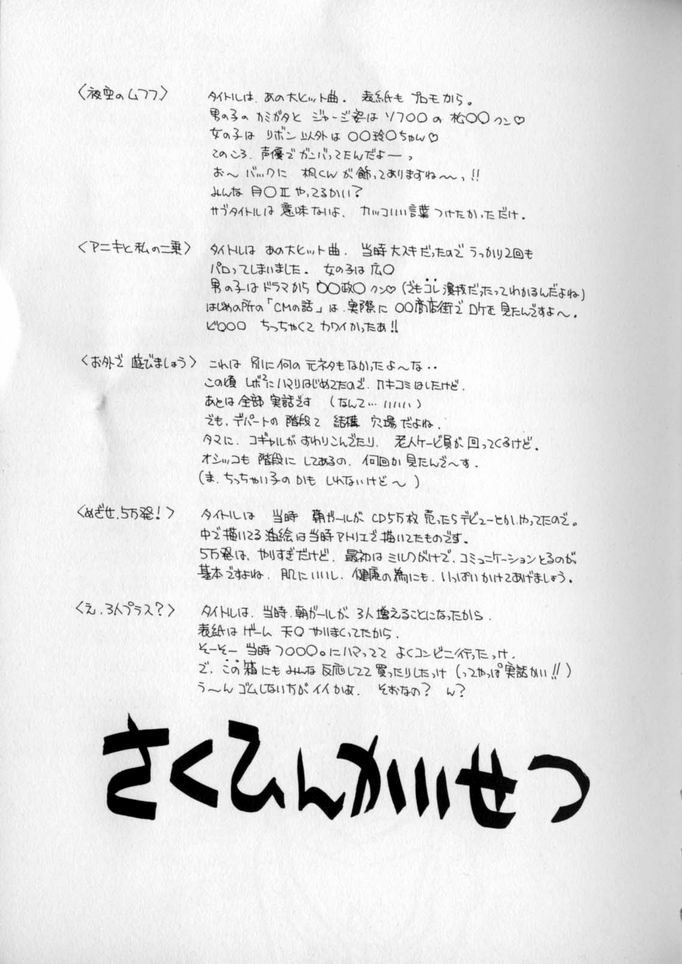 〈夜空のムフフ〉 タイトルは、あの大ヒット曲。表紙も プロモから。
男の子の カミガタと ジャージ姿は ソフ〇〇の 松〇〇クン♡
女の子は リボン以外は 〇〇玲〇ちゃん♡
このころ、声優でガンバってたんだよーっ
お〜 バックに 楓くんが 飾ってありますね〜っ!!
みんな 月〇Ⅱ やってるかい?
サブタイトルは 意味ないよ、カッコいい言葉 つけたかっただけ。
〈アニキと私の二乗〉 タイトルは あの大ヒット曲、当時大スキだったので うっかり2回も
パロってしまいました。女の子は広〇
男の子はドラマから 〇〇政〇クン♡(でもコレ演技だったってわかるんだよね)
はじめの所の「CMの話」は、実際に 〇〇商店街で ロケを見たんですよ〜。
ビ〇〇〇 ちっちゃくて カワイかったあ!!
〈お外で 遊びましょう〉 これは 別に何の 元ネタもなかったよ〜な・・
この頃 にハマりはじめてたので、カキコミはしたけど、
あとは全部 実話です (なんて…いいい)
でも、デパートの 階段って 結構 穴場だよね。
タマに、コギャルが すわりこんでたり、老人ケービ員が 回ってくるけど。
オシッコも 階段に してあるの、何回か 見たんで〜す。
(ま、ちっちゃい子の かも しれないけど〜)
〈めざせ、5万発!〉 タイトルは 当時 朝ガールが CD5万枚 売ったらデビューとか、やってたので。
中で描いてる 油絵は 当時アトリエで 描いてたものです。
5万発は、やりすぎだけど、最初は ミルクがけで、コミュニケーションとるのが
基本ですよね、肌にいいし、健康の為にも、いっぱいかけてあげましょう。
〈え、3人プラス?〉 タイトルは、当時、朝ガールが、3人 増えることに なったから、
表紙は ゲーム 天〇 やりまくってたから、
そーそー 当時 フ〇〇〇。にハマってて よくコンビニ行ったっけ、
で、この箱にも みんな 反応してて 買ったりしたっけ (ってやっぱ 実話かい!!)
う〜ん ゴムしない方が イイかよ、そおなの? ん?
さくひんかいせつ